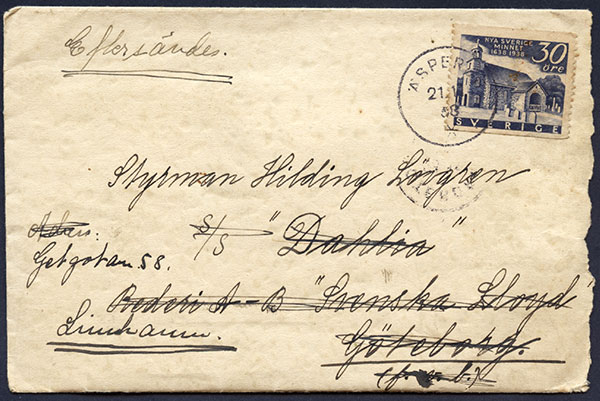 Eftersändes.
NYA SVERIGE
MINNET
1638 1938
30
öre
SVERIGE
21
38
Styrman Hilding Lövgren
S/S "Dahlia"
Adress.
Getgatan 58.
Rederi A-B "Svenska Lloyd
Limhamn.
Göteborg.
(f. v. b.)